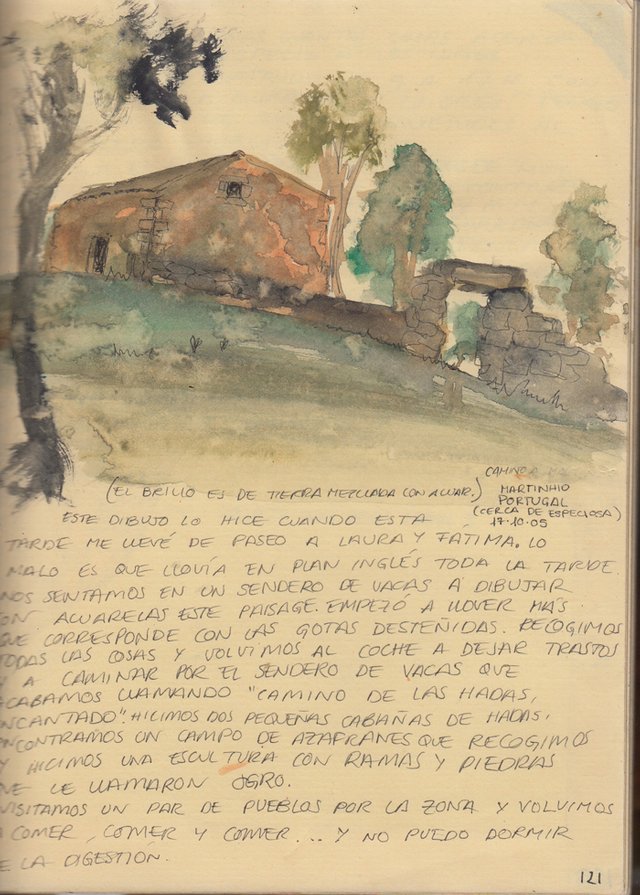 CAMINO A
(EL BRILLO ES DE TIERRA MEZCLADA CON ACUAR.)
MARTINHIO
PORTUGAL
(CERCA DE ESPECIOSA)
17.10.05
ESTE DIBUJO LO HICE CUANDO ESTA
TARDE ME LLEVÉ DE PASEO A LAURA Y FÁTIMA. LO
MALO ES QUE LLOVÍA EN PLAN INGLÉS TODA LA TARDE
NOS SENTAMOS EN UN SENDERO DE VACAS A DIBUJAR
CON ACUARELAS ESTE PAISAGE. EMPEZÓ A LLOVER MÁS
QUE CORRESPONDE CON LAS GOTAS DESTEÑIDAS. RECOGIMOS
TODAS LAS COSAS Y VOLVIMOS AL COCHE A DEJAR TRASTOS
Y A CAMINAR POR EL SENDERO DE VACAS QUE
ACABAMOS LLAMANDO "CAMINO DE LAS HADAS,
ENCANTADO". HICIMOS DOS PEQUEÑAS CABAÑAS DE HADAS,
ENCONTRAMOS UN CAMPO DE AZAFRANES QUE RECOGIMOS
Y HICIMOS UNA ESCULTURA CON RAMAS Y PIEDRAS
QUE LE LLAMARON OGRO.
VISITAMOS UN PAR DE PUEBLOS POR LA ZONA Y VOLVIMOS
A COMER, COMER Y COMER... Y NO PUEDO DORMIR
DE LA DIGESTIÓN.
121